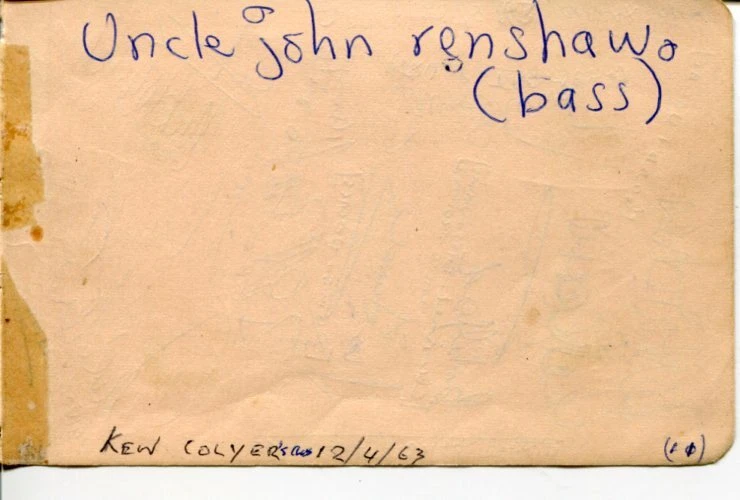 Uncle john renshaw.
(bass)
KEN COLYER'S 12/4/63